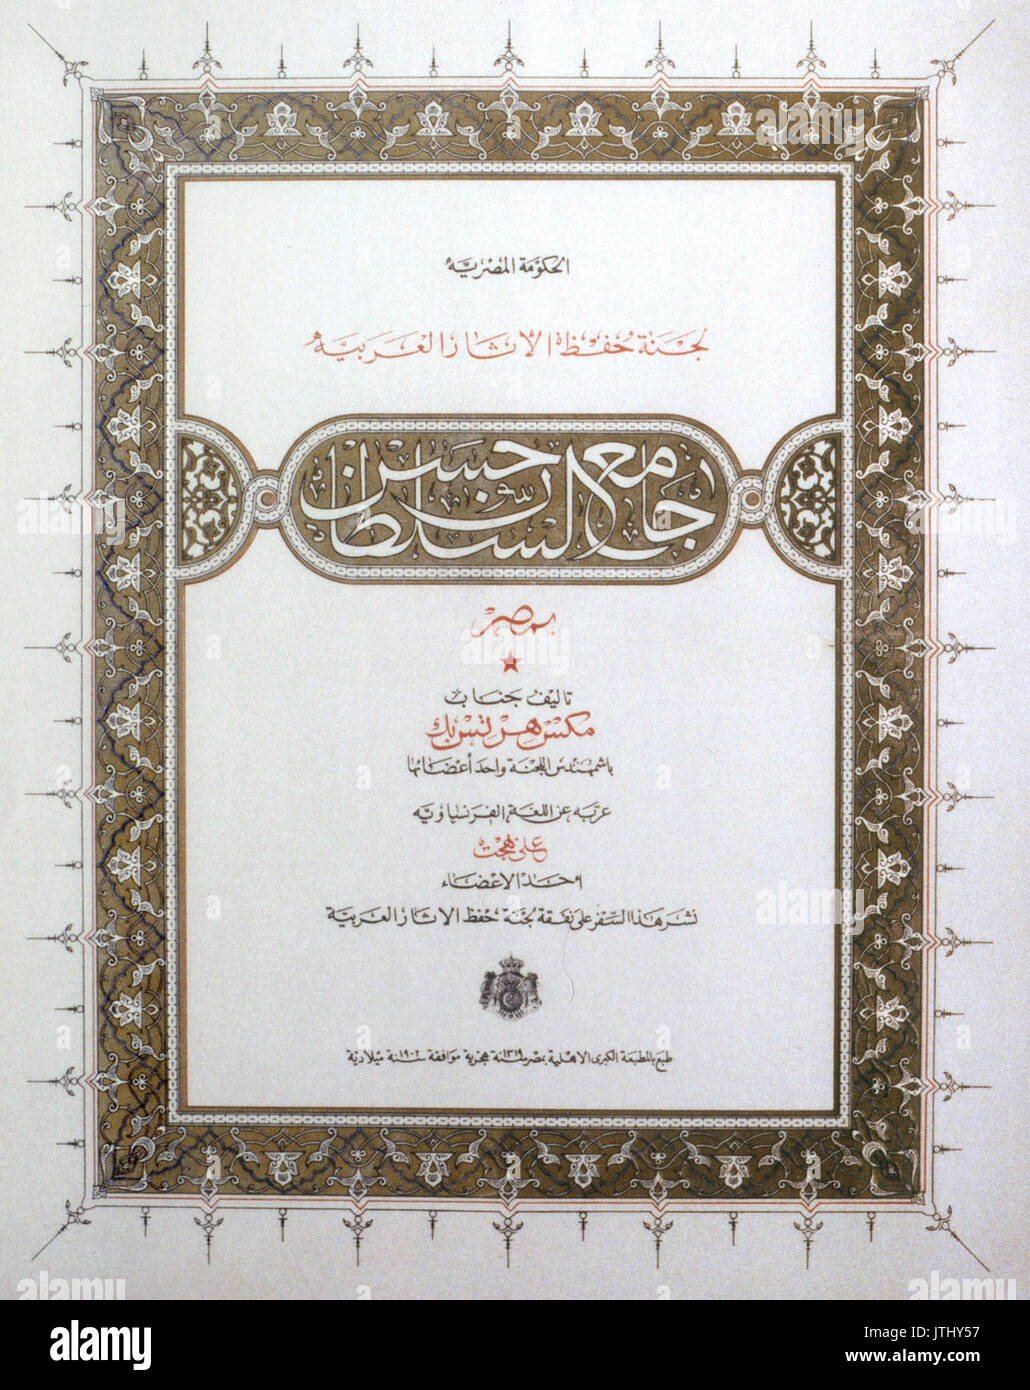 الحكومة المصريه
لجنة حفظ الاثار العربيه
جامع السلطان حسن
بمصر
تاليف جناب
مكس هرتس بك
باشمهندس اللجنة واحد أعضائها
عربه عن اللغة الفرنساويه
على بهجت
احد الاعضاء
نشر هذا السفر على نفقة لجنة حفظ الاثار العربية
طبع بالمطبعة الكبرى الاهلية بمصر سنة ١٣١٩ هجرية موافقة سنة ١٩٠٢ ميلادية
alamy
alamy
Image ID: JTHY57
www.alamy.com